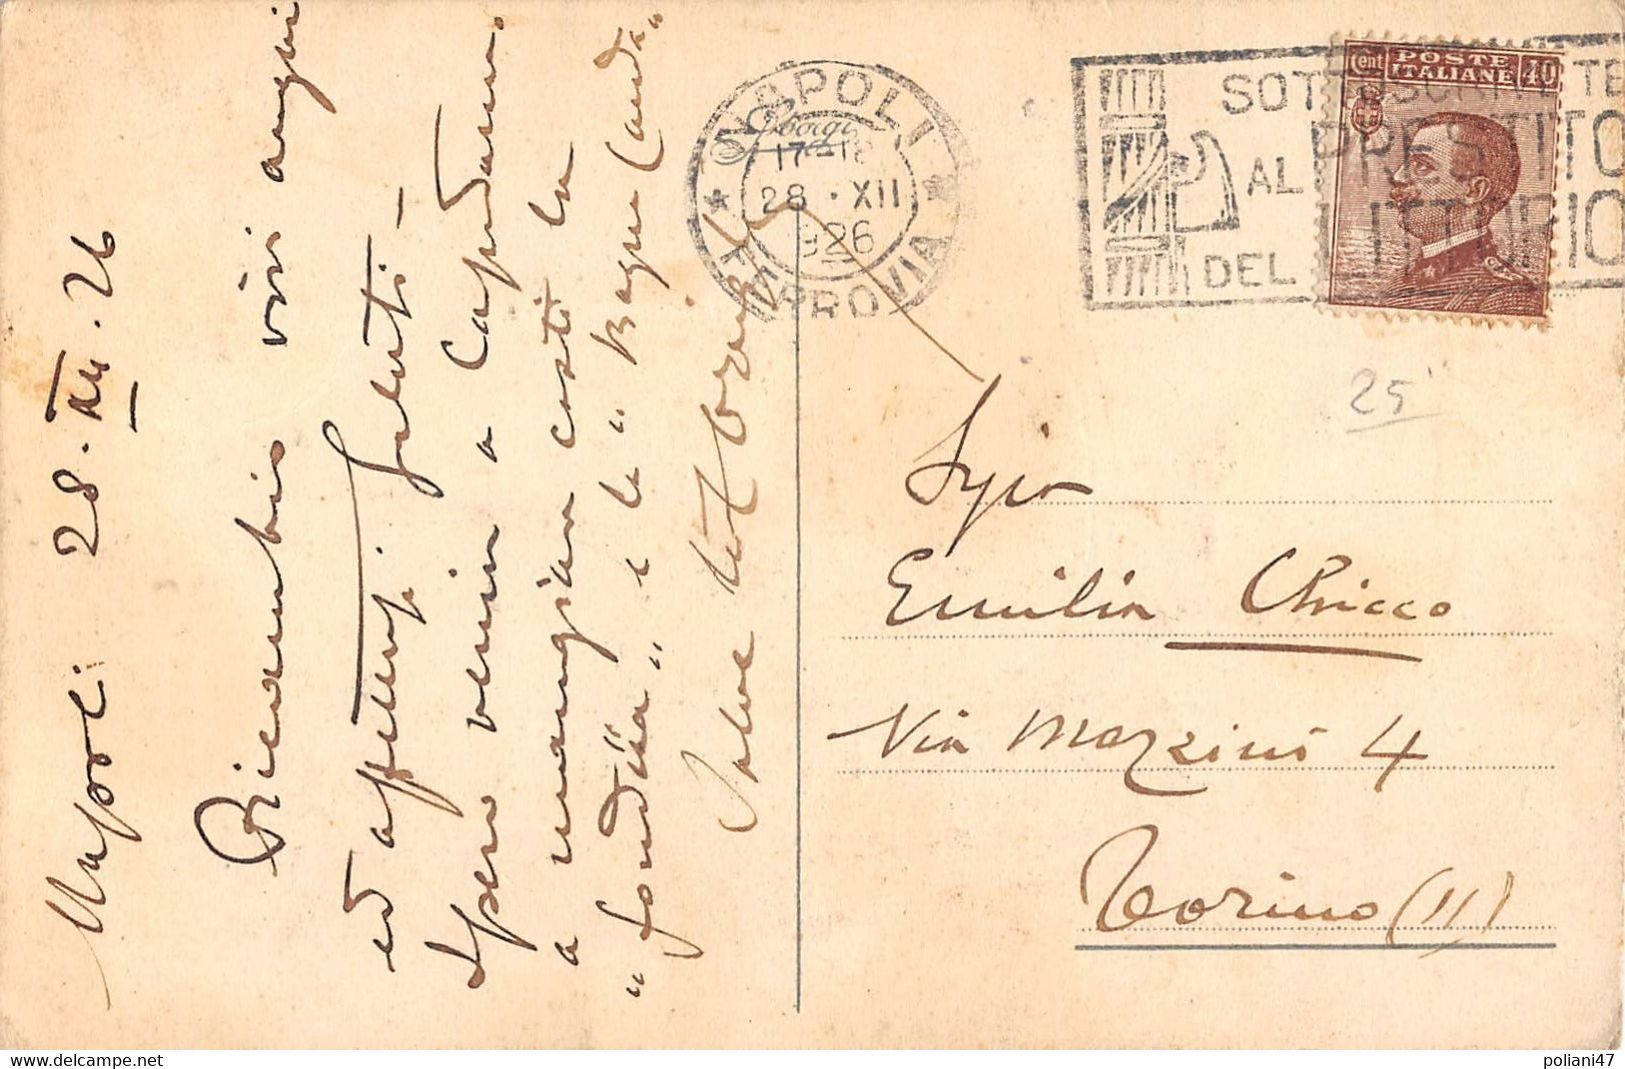 Napoli 28·XII·26
Ricambio vivi auguri
ed affettuosi saluti –
Spero venir a Capodanno
a mangiare costì la
"fonduta" e la "Bagna Cauda"
NAPOLI
FERROVIA
17-18
28 · XII
926
SOTTOSCRIVETE
AL PRESTITO
DEL LITTORIO
Cent POSTE ITALIANE 40
25
Sig.ra
Emilia Chicco
Via Mazzini 4
Torino (11)
poliani47